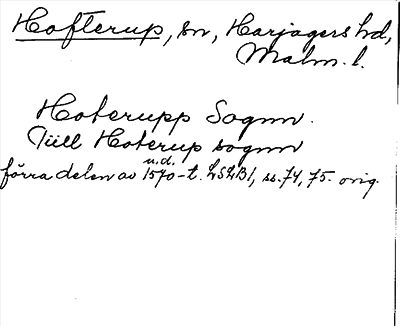 Hofterup, sn, Harjagers hd,
Malm. l.
Hoterupp Sognn.
Tüll Hoterup sognn
u.d.
förra delen av 1570-t. LSLB1, ss. 74, 75. orig.